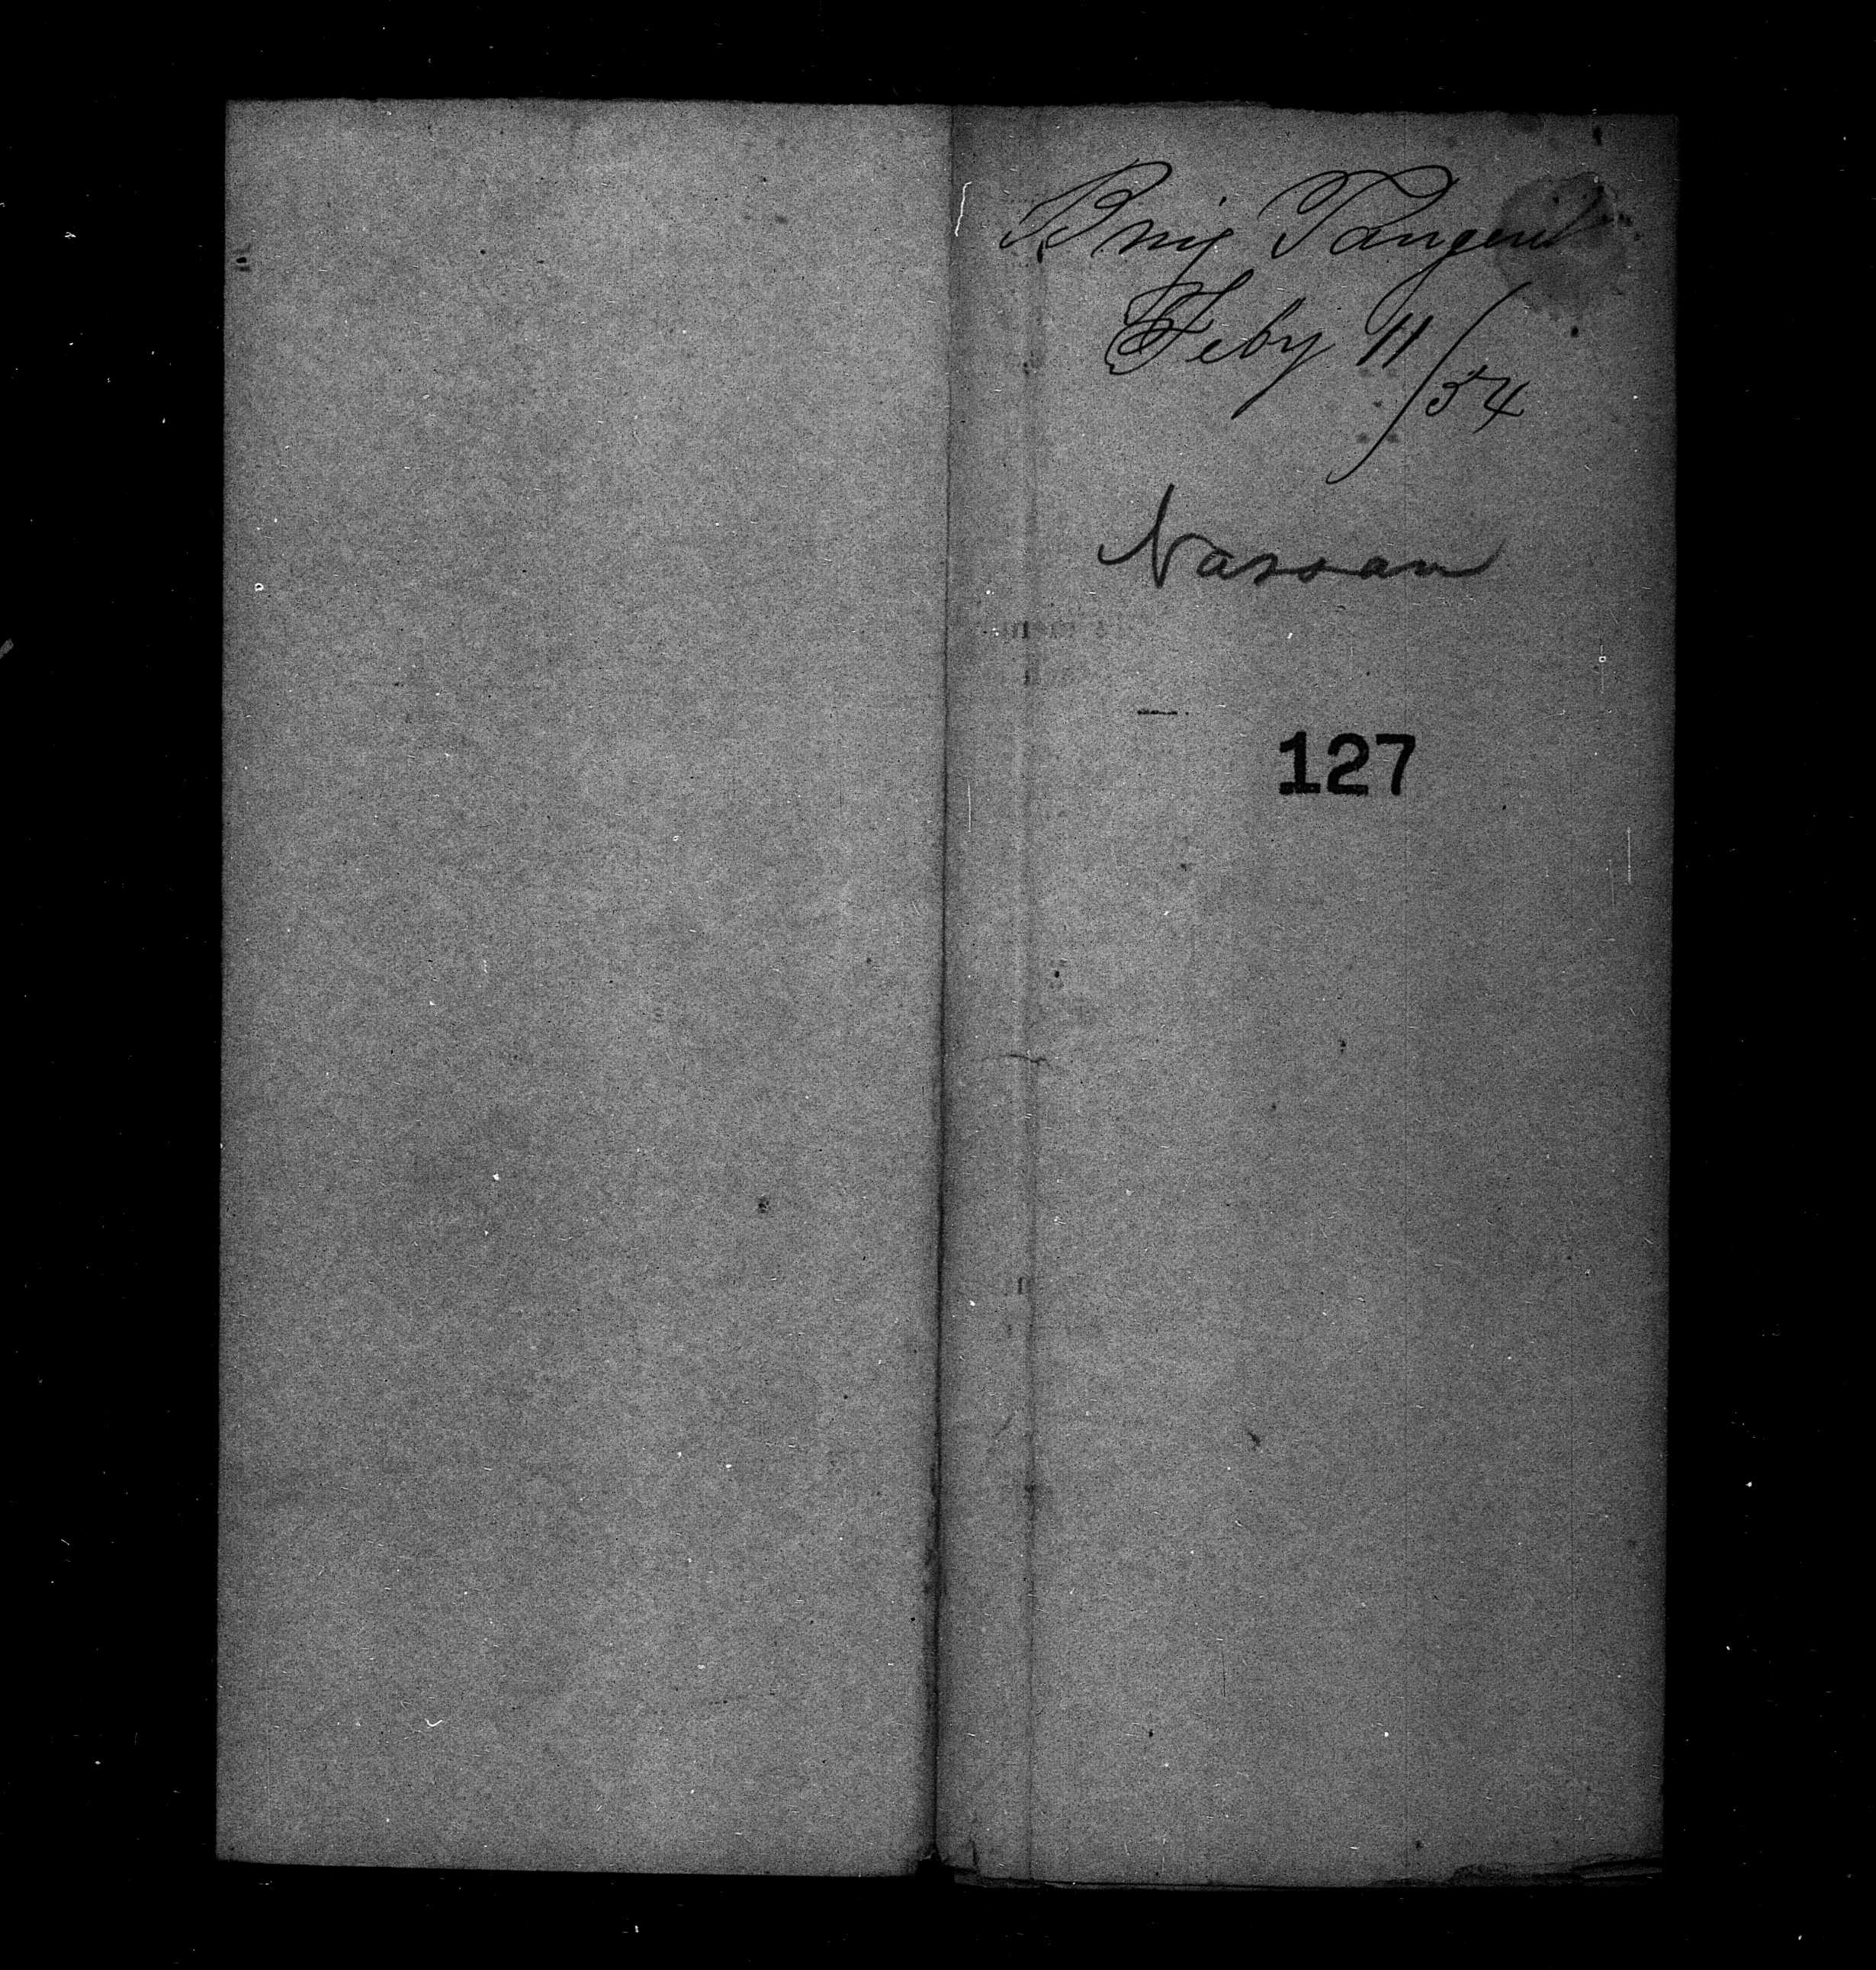 Brig Tangent
Feby 11/54
Nassau
127